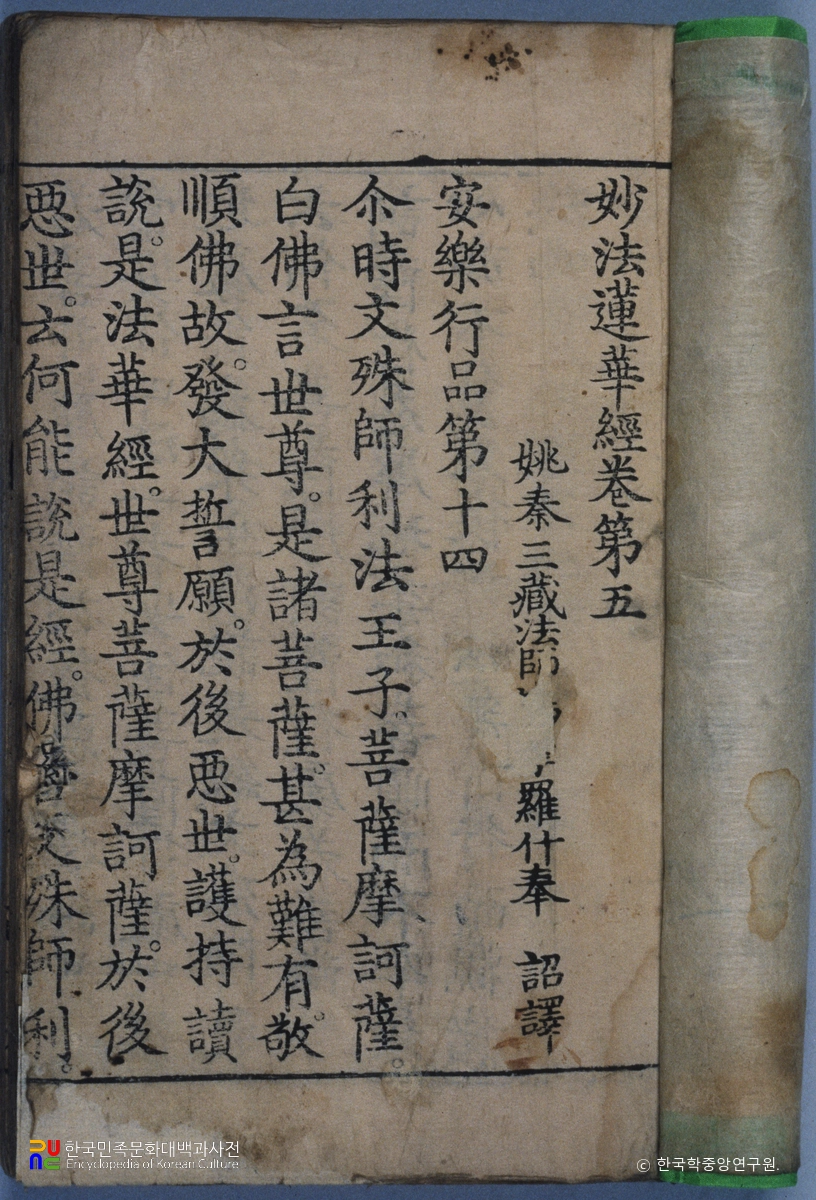 妙法蓮華經卷第五
姚秦三藏法師 羅什奉 詔譯
安樂行品第十四
尒時文殊師利法王子。菩薩摩訶薩。
白佛言世尊。是諸菩薩。甚為難有。敬
順佛故。發大誓願。於後惡世。護持讀
說。是法華經。世尊菩薩摩訶薩。於後
惡世。云何能說是經。佛告文殊師利。
한국민족문화대백과사전
Encyclopedia of Korean Culture
© 한국학중앙연구원.